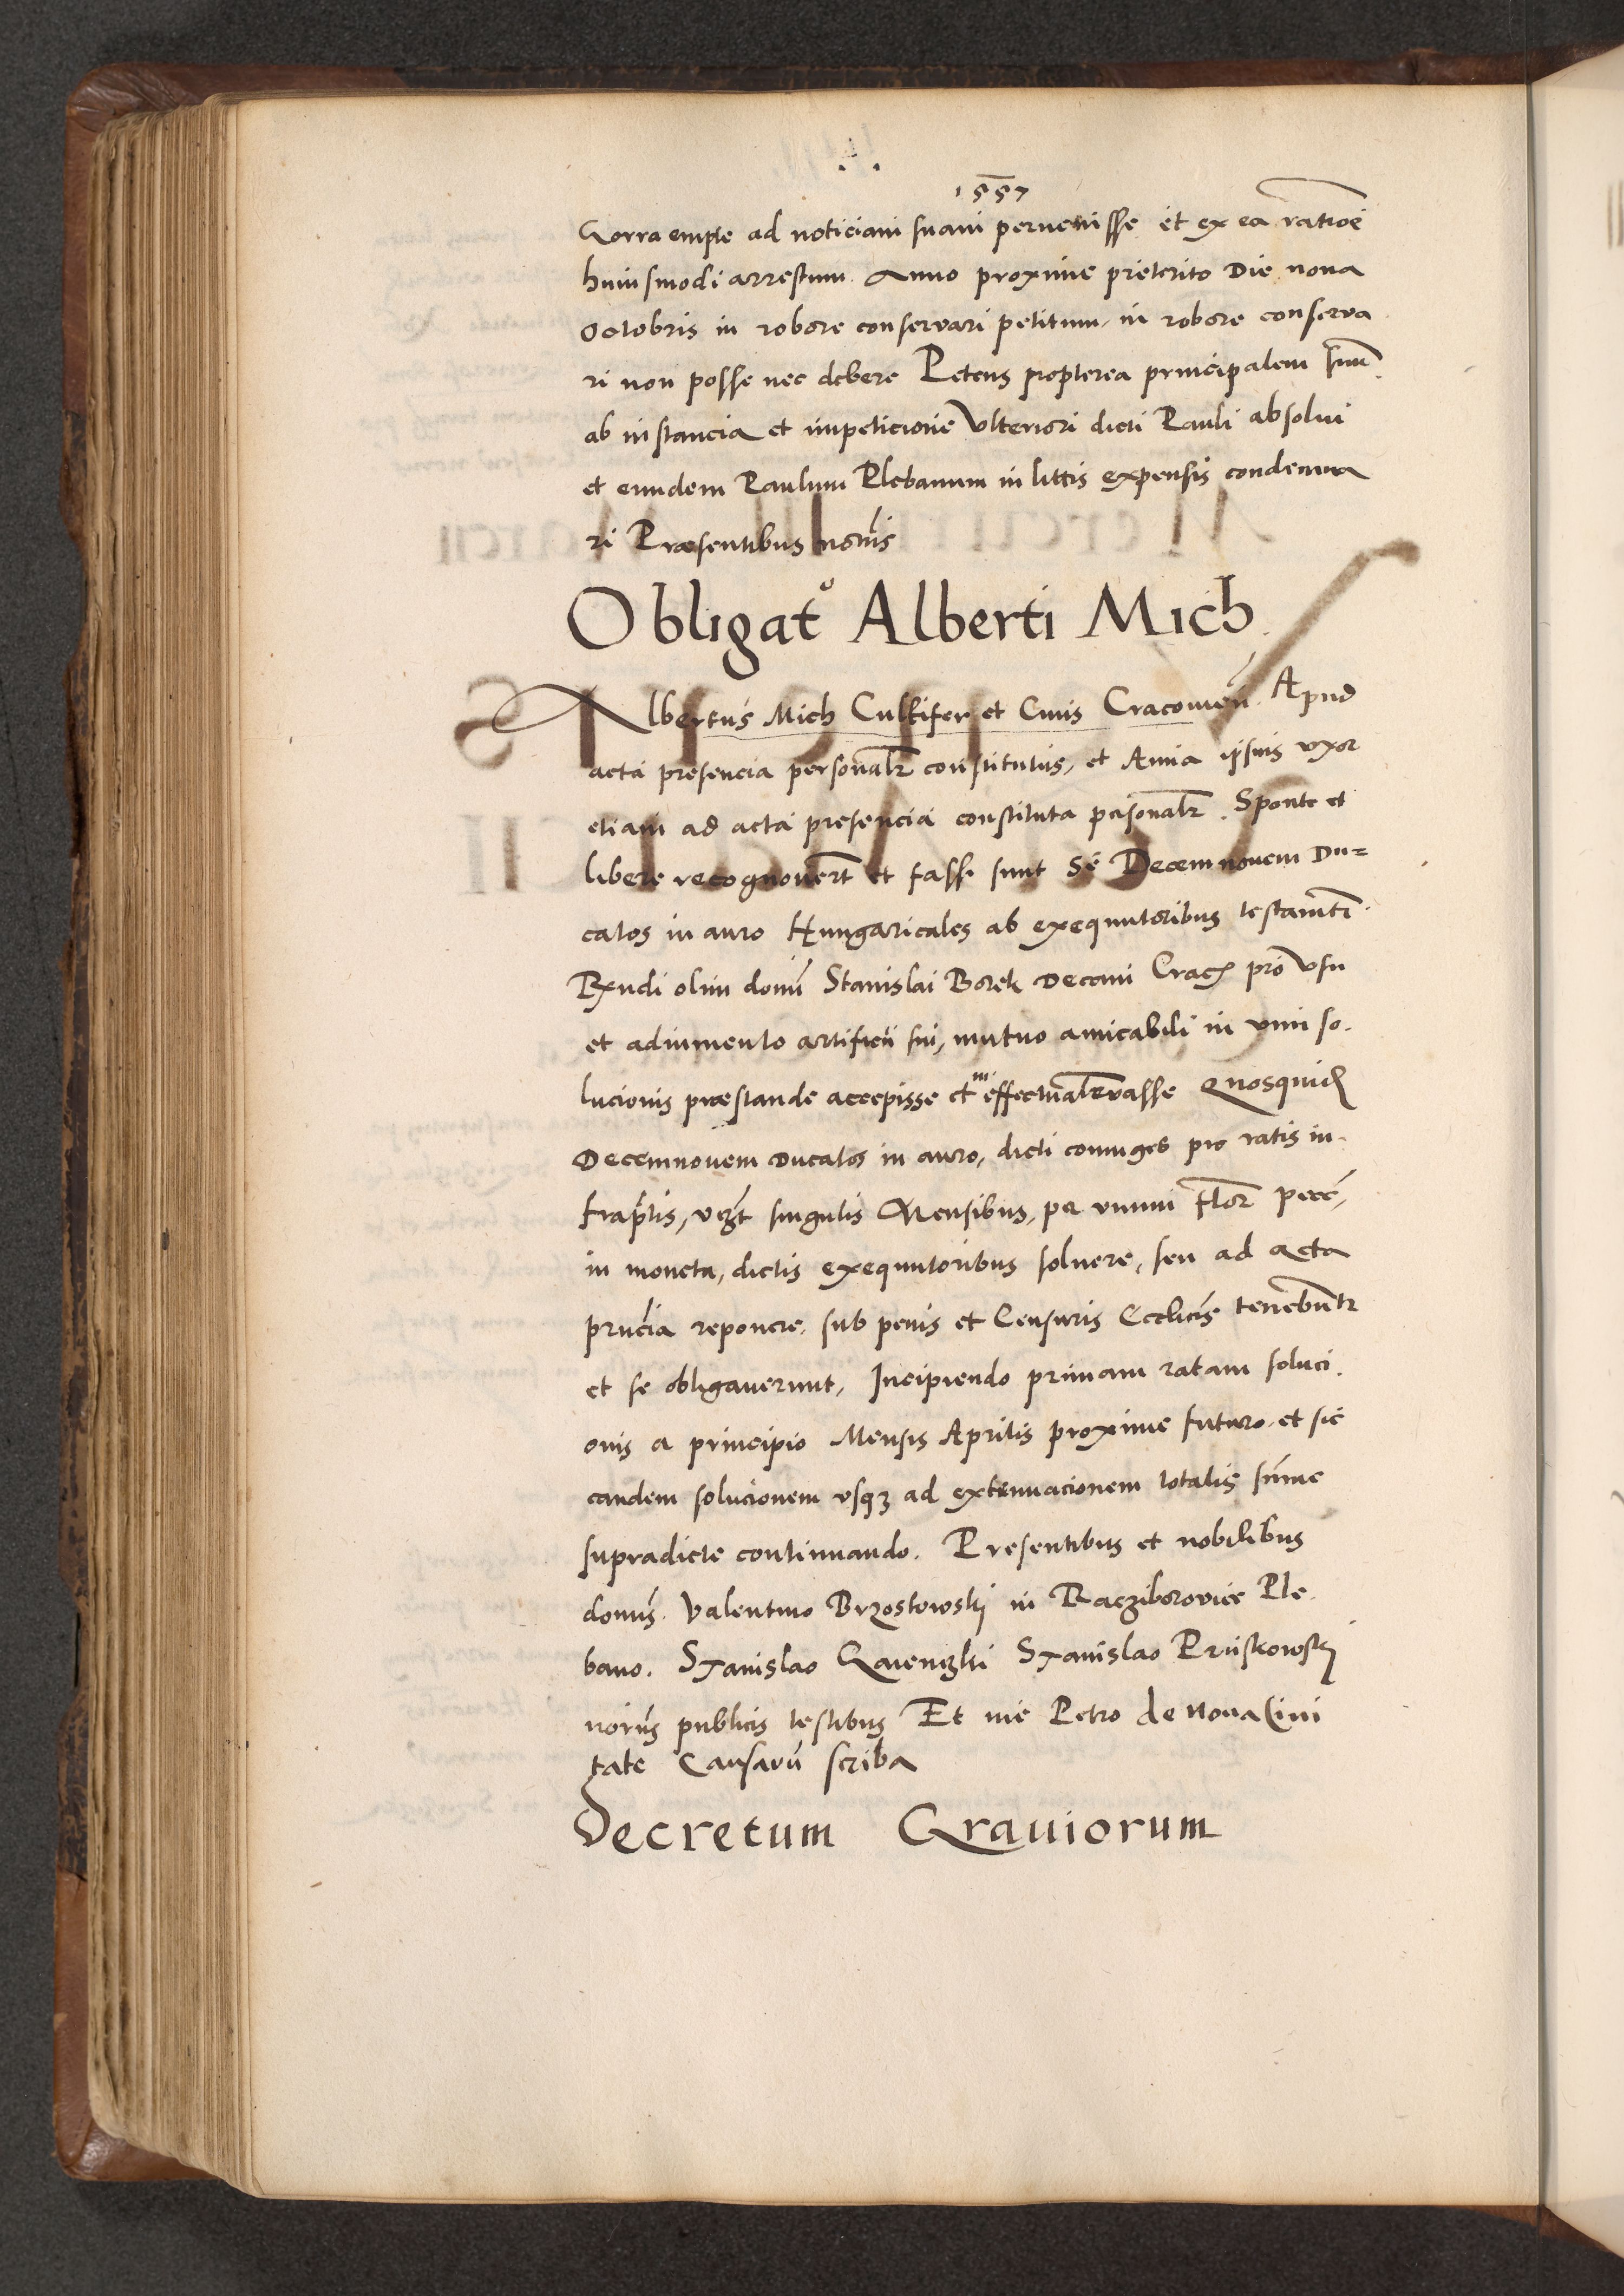 1557
Gorra empte ad noticiam suam pervenisse et ex ea ratioe
huiusmodi arrestum Anno proxime preterito Die nona
Octobris in robore conservari petitum, in robore conserva
ri non posse nec debere Petens propterea principalem suum
ab instancia et impeticione Ulteriori dicti Pauli absolui
et eundem Paulum Plebanum in littis expensis condemna
ri Praesentibus notariis
Obligat Alberti Mich
Albertus Mich Cultifer et Ciuis Cracouien Apud
acta presencia personalr constitutus, et Anna ipsius vxor
etiam ad acta presencia constituta personalr. Sponte et
libere recognouert et fasse sunt Se Decem nouem Du=
catos in auro Hungaricales ab exequutoribus testamti
Rndi olim domi Stanislai Borek Decani Crac pro Vsu
et adiumento artificii sui, mutuo amicabili in vim so
lucionis praestande accepisse et effectualr leuasse Quosquid
Decemnouem Ducatos in auro, dicti coniuges pro ratis in
fraptis, vezt singulis Mensibus, per vnum Flor pecc,
in moneta, dictis exequutoribus soluere, seu ad acta
pncia reponere, sub penis et Censuris Ecclicis tenebuntr
et se obligauerunt, Incipiendo primam ratam soluci
onis a principio Mensis Aprilis proxime futuro et sic
eandem solucionem vsqz ad extenuacionem totalis sume
supradicte continuando. Presentibus et nobilibus
domis. Valentino Brzostowskj in Racziborovice Ple
bano. Stanislao Stanislao Pruskowskj
noriis publicis testibus Et me Petro de Noua Ciui
tate Causaru scriba
Decretum Grauiorum